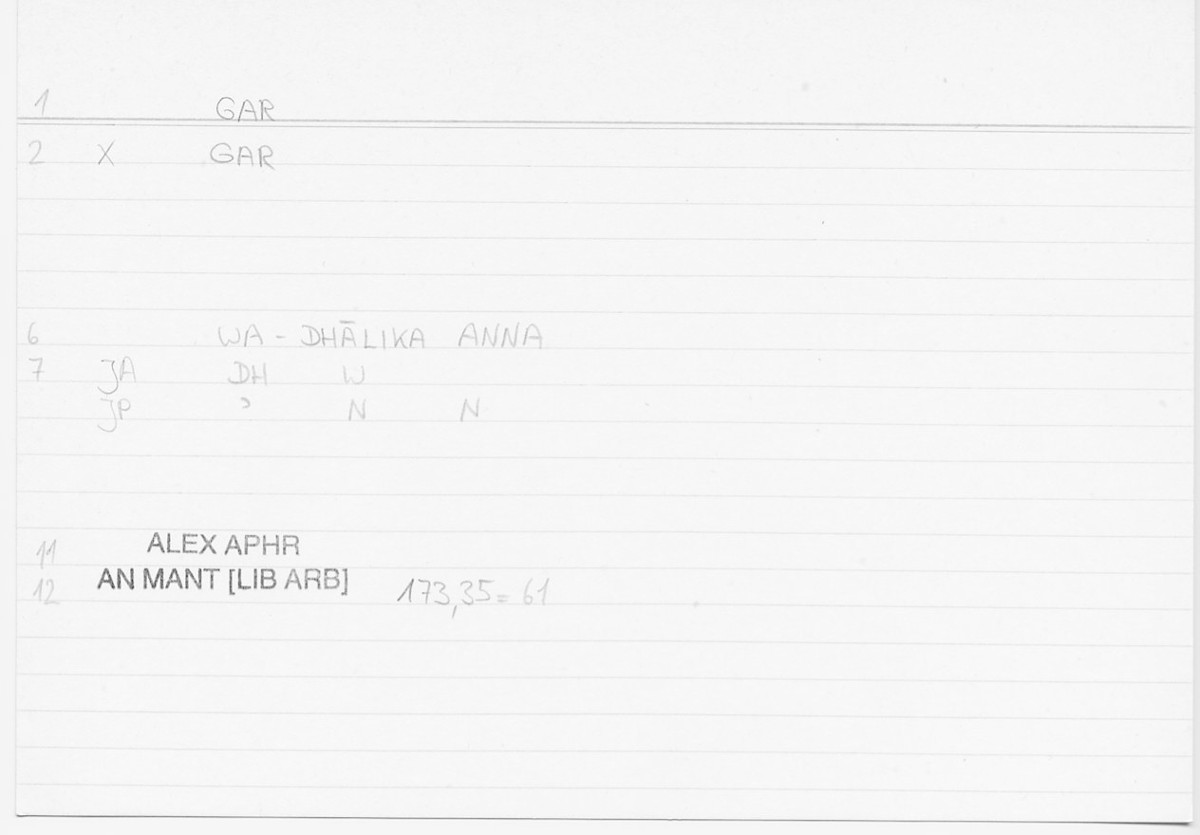 1 GAR
2 X GAR
6 WA - DHĀLIKA ANNA
7 JA DH W
JP ʾ N N
11 ALEX APHR
12 AN MANT [LIB ARB] 173,35 = 61